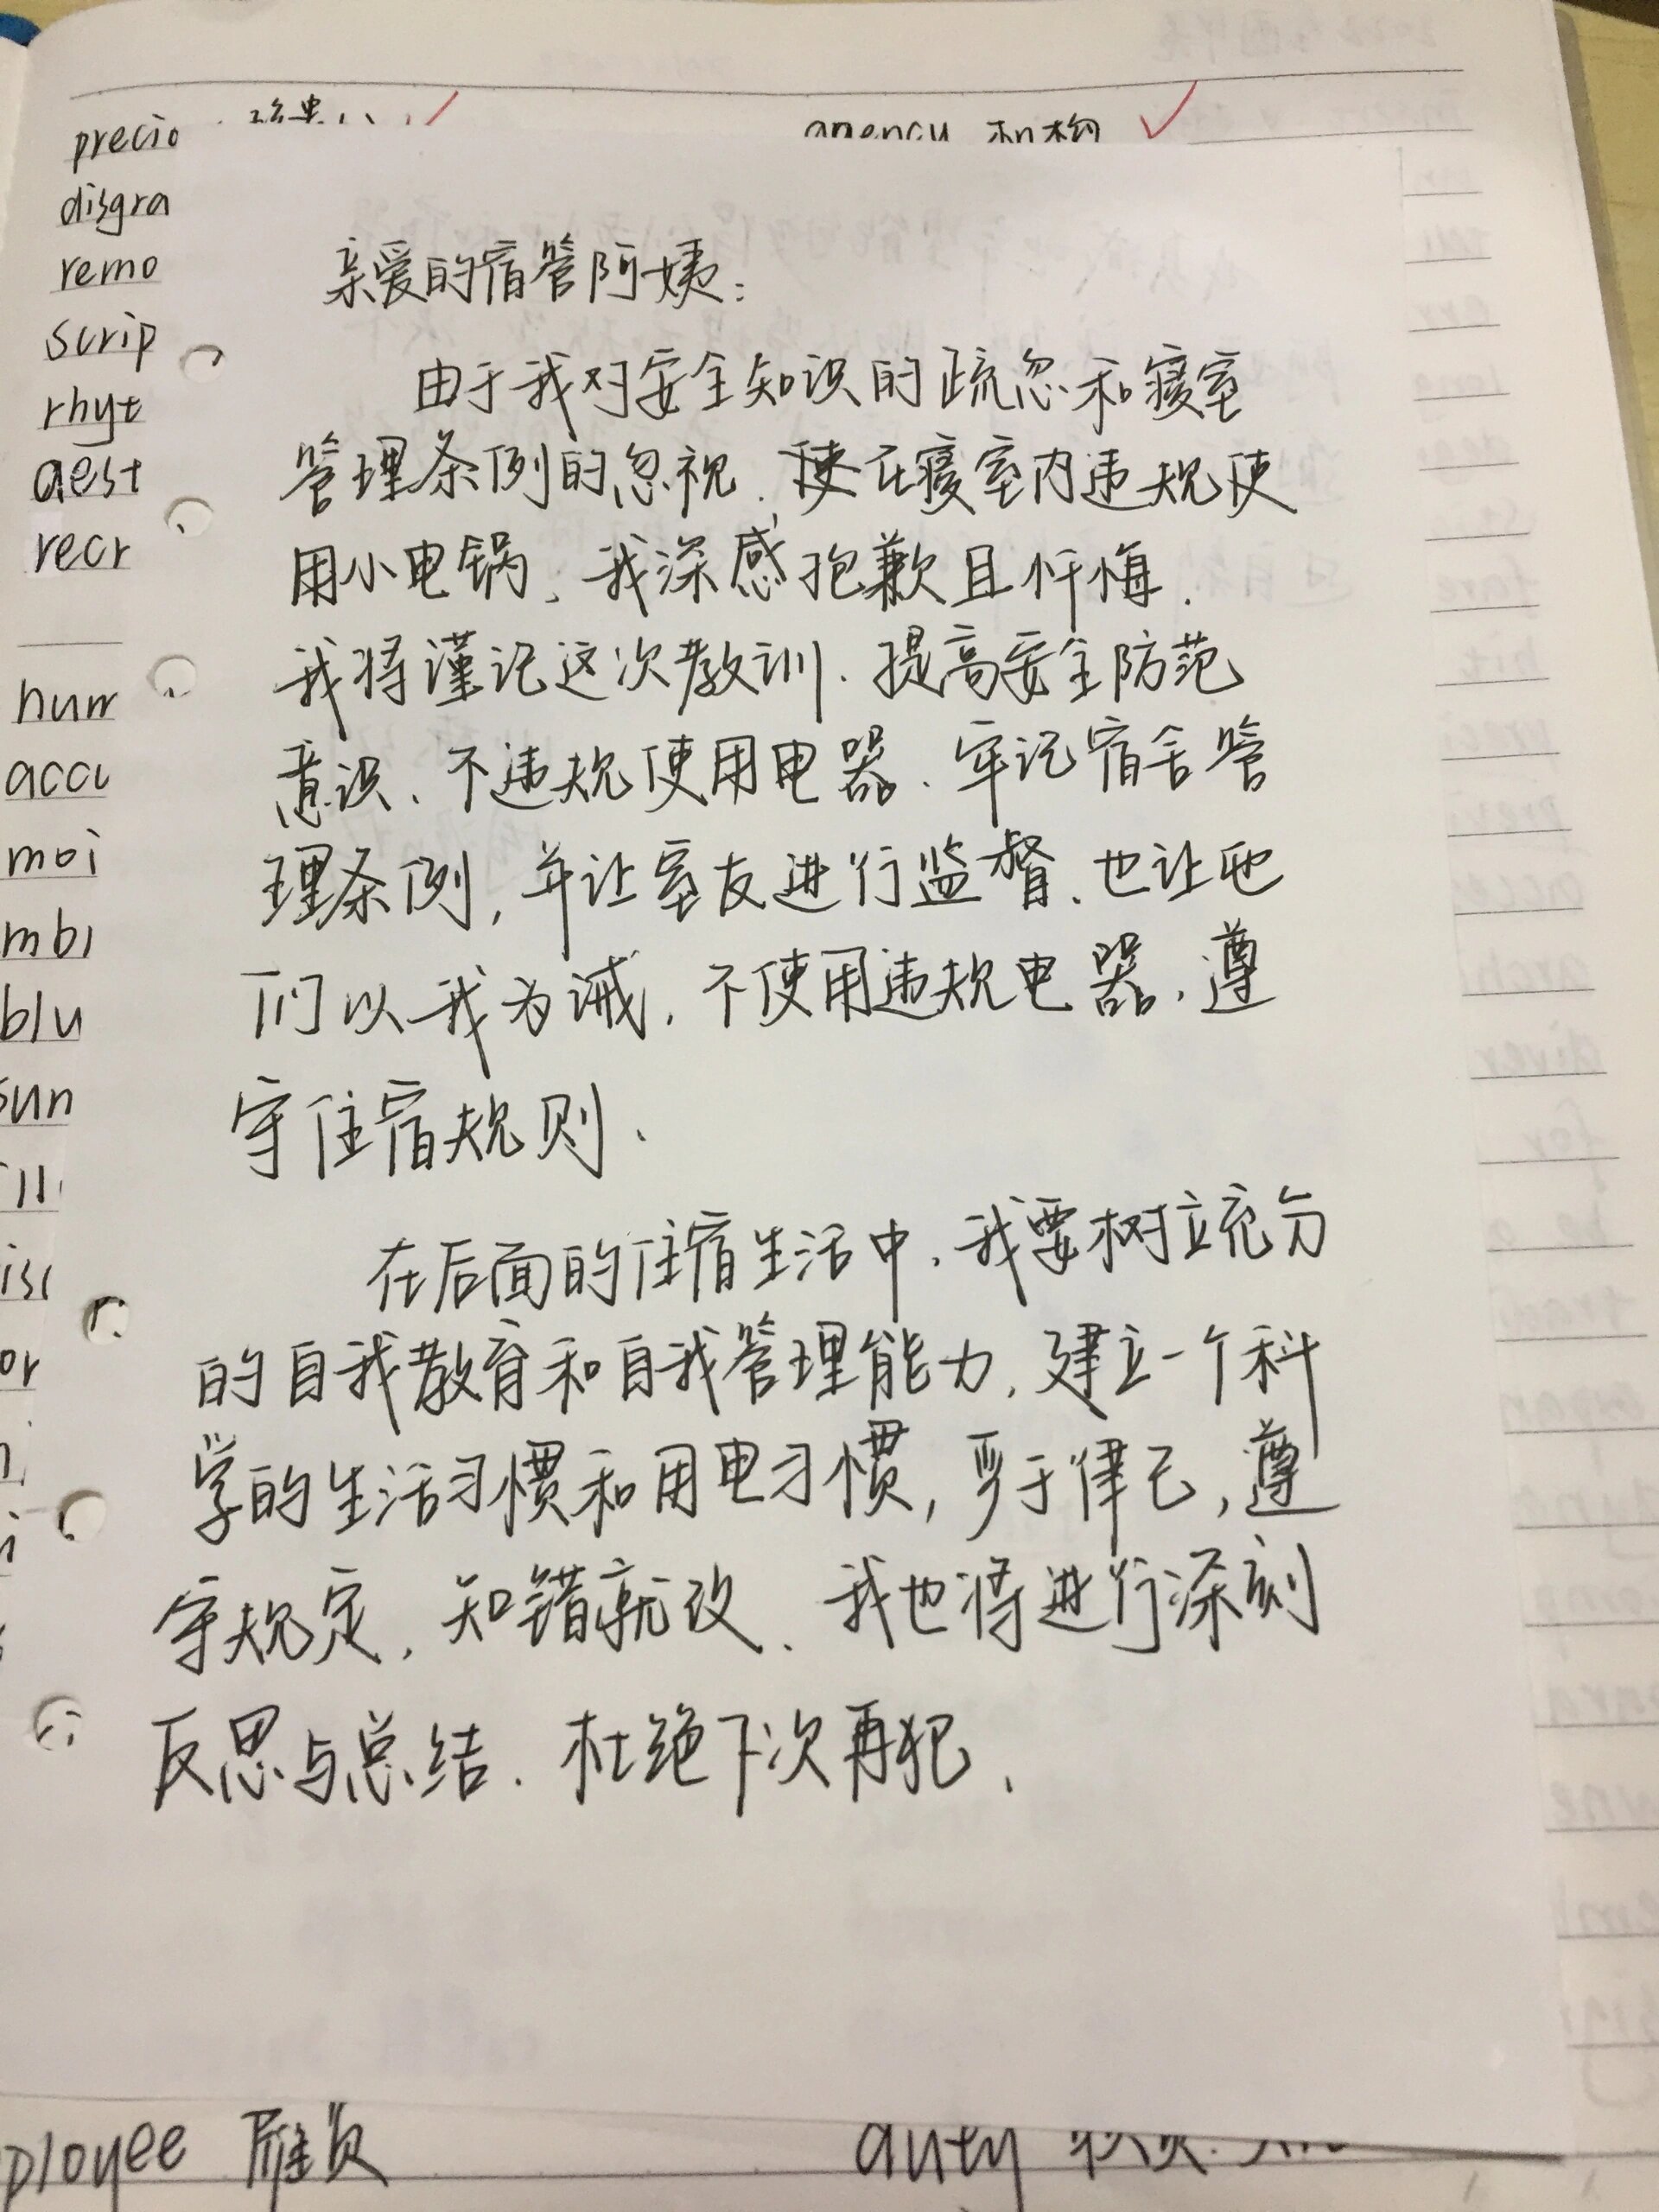 precio
agency 机构
disgra
remo
scrip
rhyt
aest
recr
num
accu
moi
mbi
blu
sun
亲爱的宿管阿姨：
由于我对安全知识的疏忽和寝室
管理条例的忽视、使在寝室内违规使
用小电锅、我深感抱歉且忏悔.
我将谨记这次教训、提高安全防范
意识、不违规使用电器、牢记宿舍管
理条例，并让室友进行监督、也让他
们以我为诫、不使用违规电器、遵
守住宿规则、
在后面的住宿生活中、我要树立充分
的自我教育和自我管理能力、建立一个科
学的生活习惯和用电习惯，严于律己，遵
守规定、知错就改、我也将进行深刻
反思与总结、杜绝下次再犯、
ployee 雇员
duty